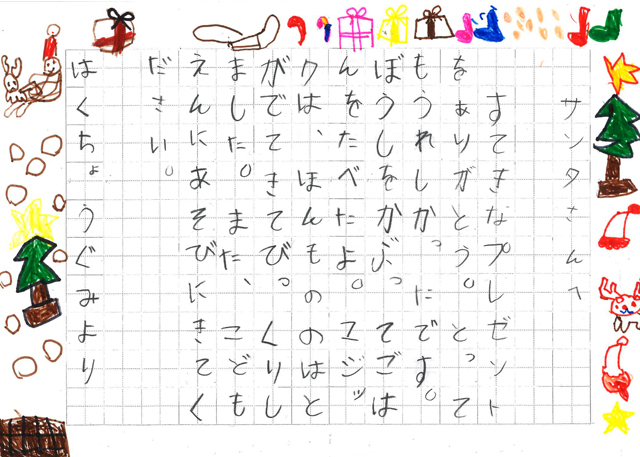 サンタさんへ
すてきなプレゼント
をありがとう。とって
もうれしかったです。
ぼうしをかぶってごは
んをたべたよ。マジッ
クは、ほんもののはと
がでてきてびっくりし
ました。また、こども
えんにあそびにきてく
ださい。
はくちょうぐみより